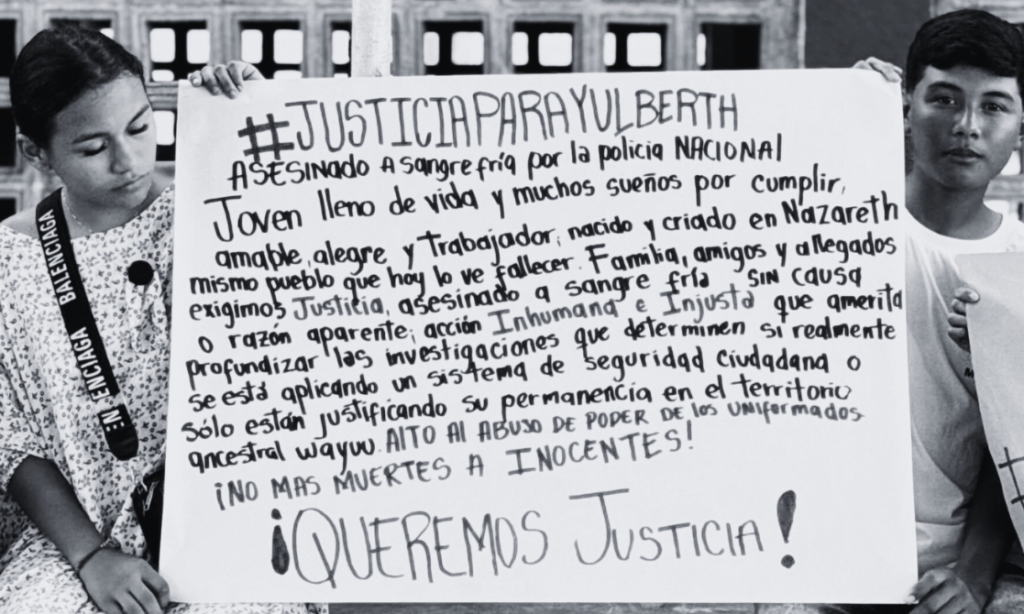 #JUSTICIAPARAYULBERTH
ASESINADO A sangre fría por la policia NACIONAl
Joven lleno de vida y muchos sueños por cumplir,
amable, alegre y trabajador, nacido y criado en Nazareth
mismo pueblo que hoy lo ve fallecer. Familia, amigos y allegados
exigimos Justicia, asesinado a sangre fría SIN CAUSA
o razón aparente, acción Inhumana e Injusta que amerita
profundizar las investigaciones que determinen si realmente
se está aplicando un sistema de seguridad ciudadana o
sólo están justificando su permanencia en el territorio
ancestral wayuu. AlTO Al ABUSO DE PODER DE los UNIFORMADOS
¡NO MAS MUERTES A INOCENTES!
¡QUEREMOS JUSTICIA!
BALENCIAGA
ENCIAGA
#